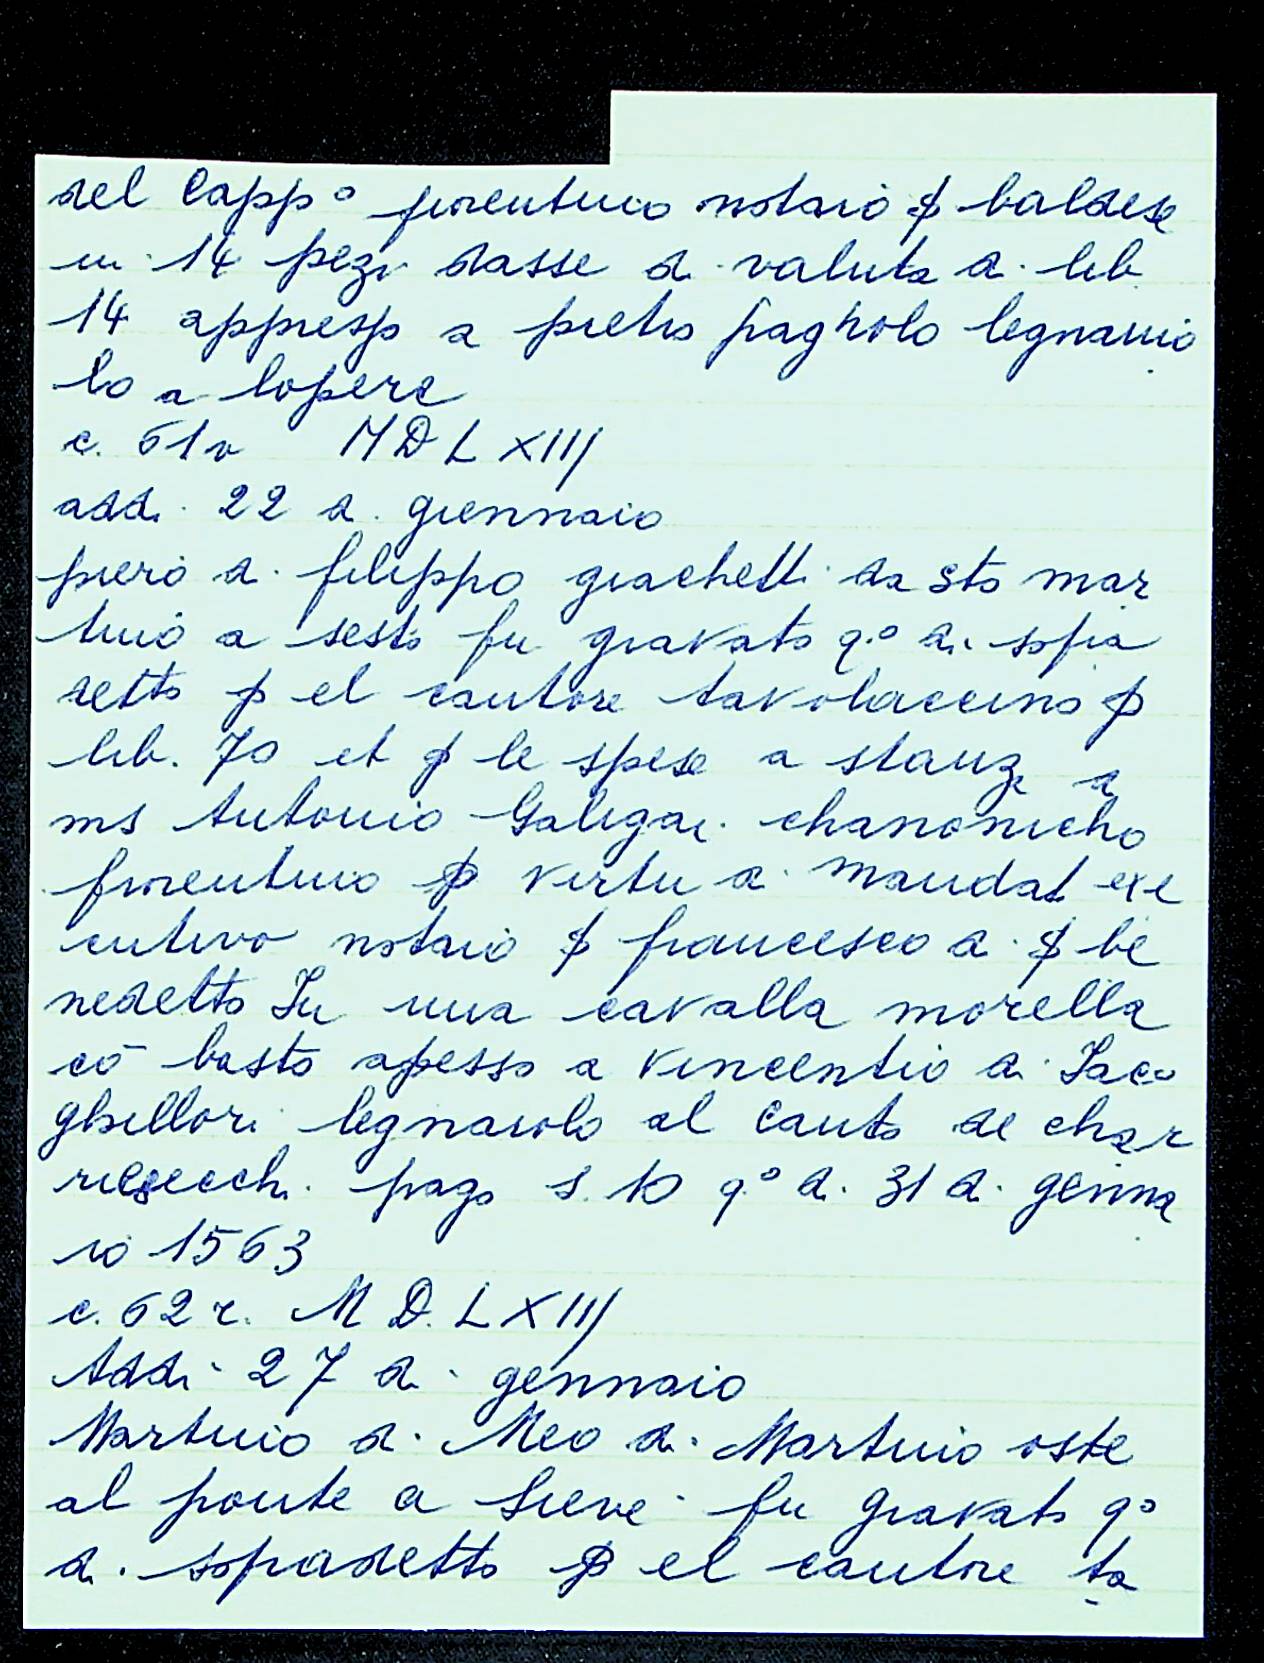 del Capp.º fiorentino notaio ꝑ baldese
in 14 pezi dasse di valuta di lib.
14 appresso a pietro pagholo legnaiuo
lo a lopere
c. 61v MDLXIIJ
addi 22 di giennaio
piero di filippo giachetti da sto mar
tino a sesto fu gravato q.º di sopra
detto ꝑ el cantore tavolaccino ꝑ
lib. 70 et ꝑ le spese a stanz a
ms Antonio Galigai chanonicho
fiorentino ꝑ vertu di mandat exe
cutivo notaio ꝑ francesco di ꝑ be
nedetto In una cavalla morella
cō basto apesso a Vincentio di Iaco
ghillori legnaiolo al Canto de char
nesecchi pago s. 10 q.º di 31 di genna
io 1563
c. 62 r. MD.LXIIJ
Addi 27 di gennaio
Martino di Meo di Martino oste
al ponte a Sieve fu gravato q.º
di sopradetto ꝑ el cantore ta